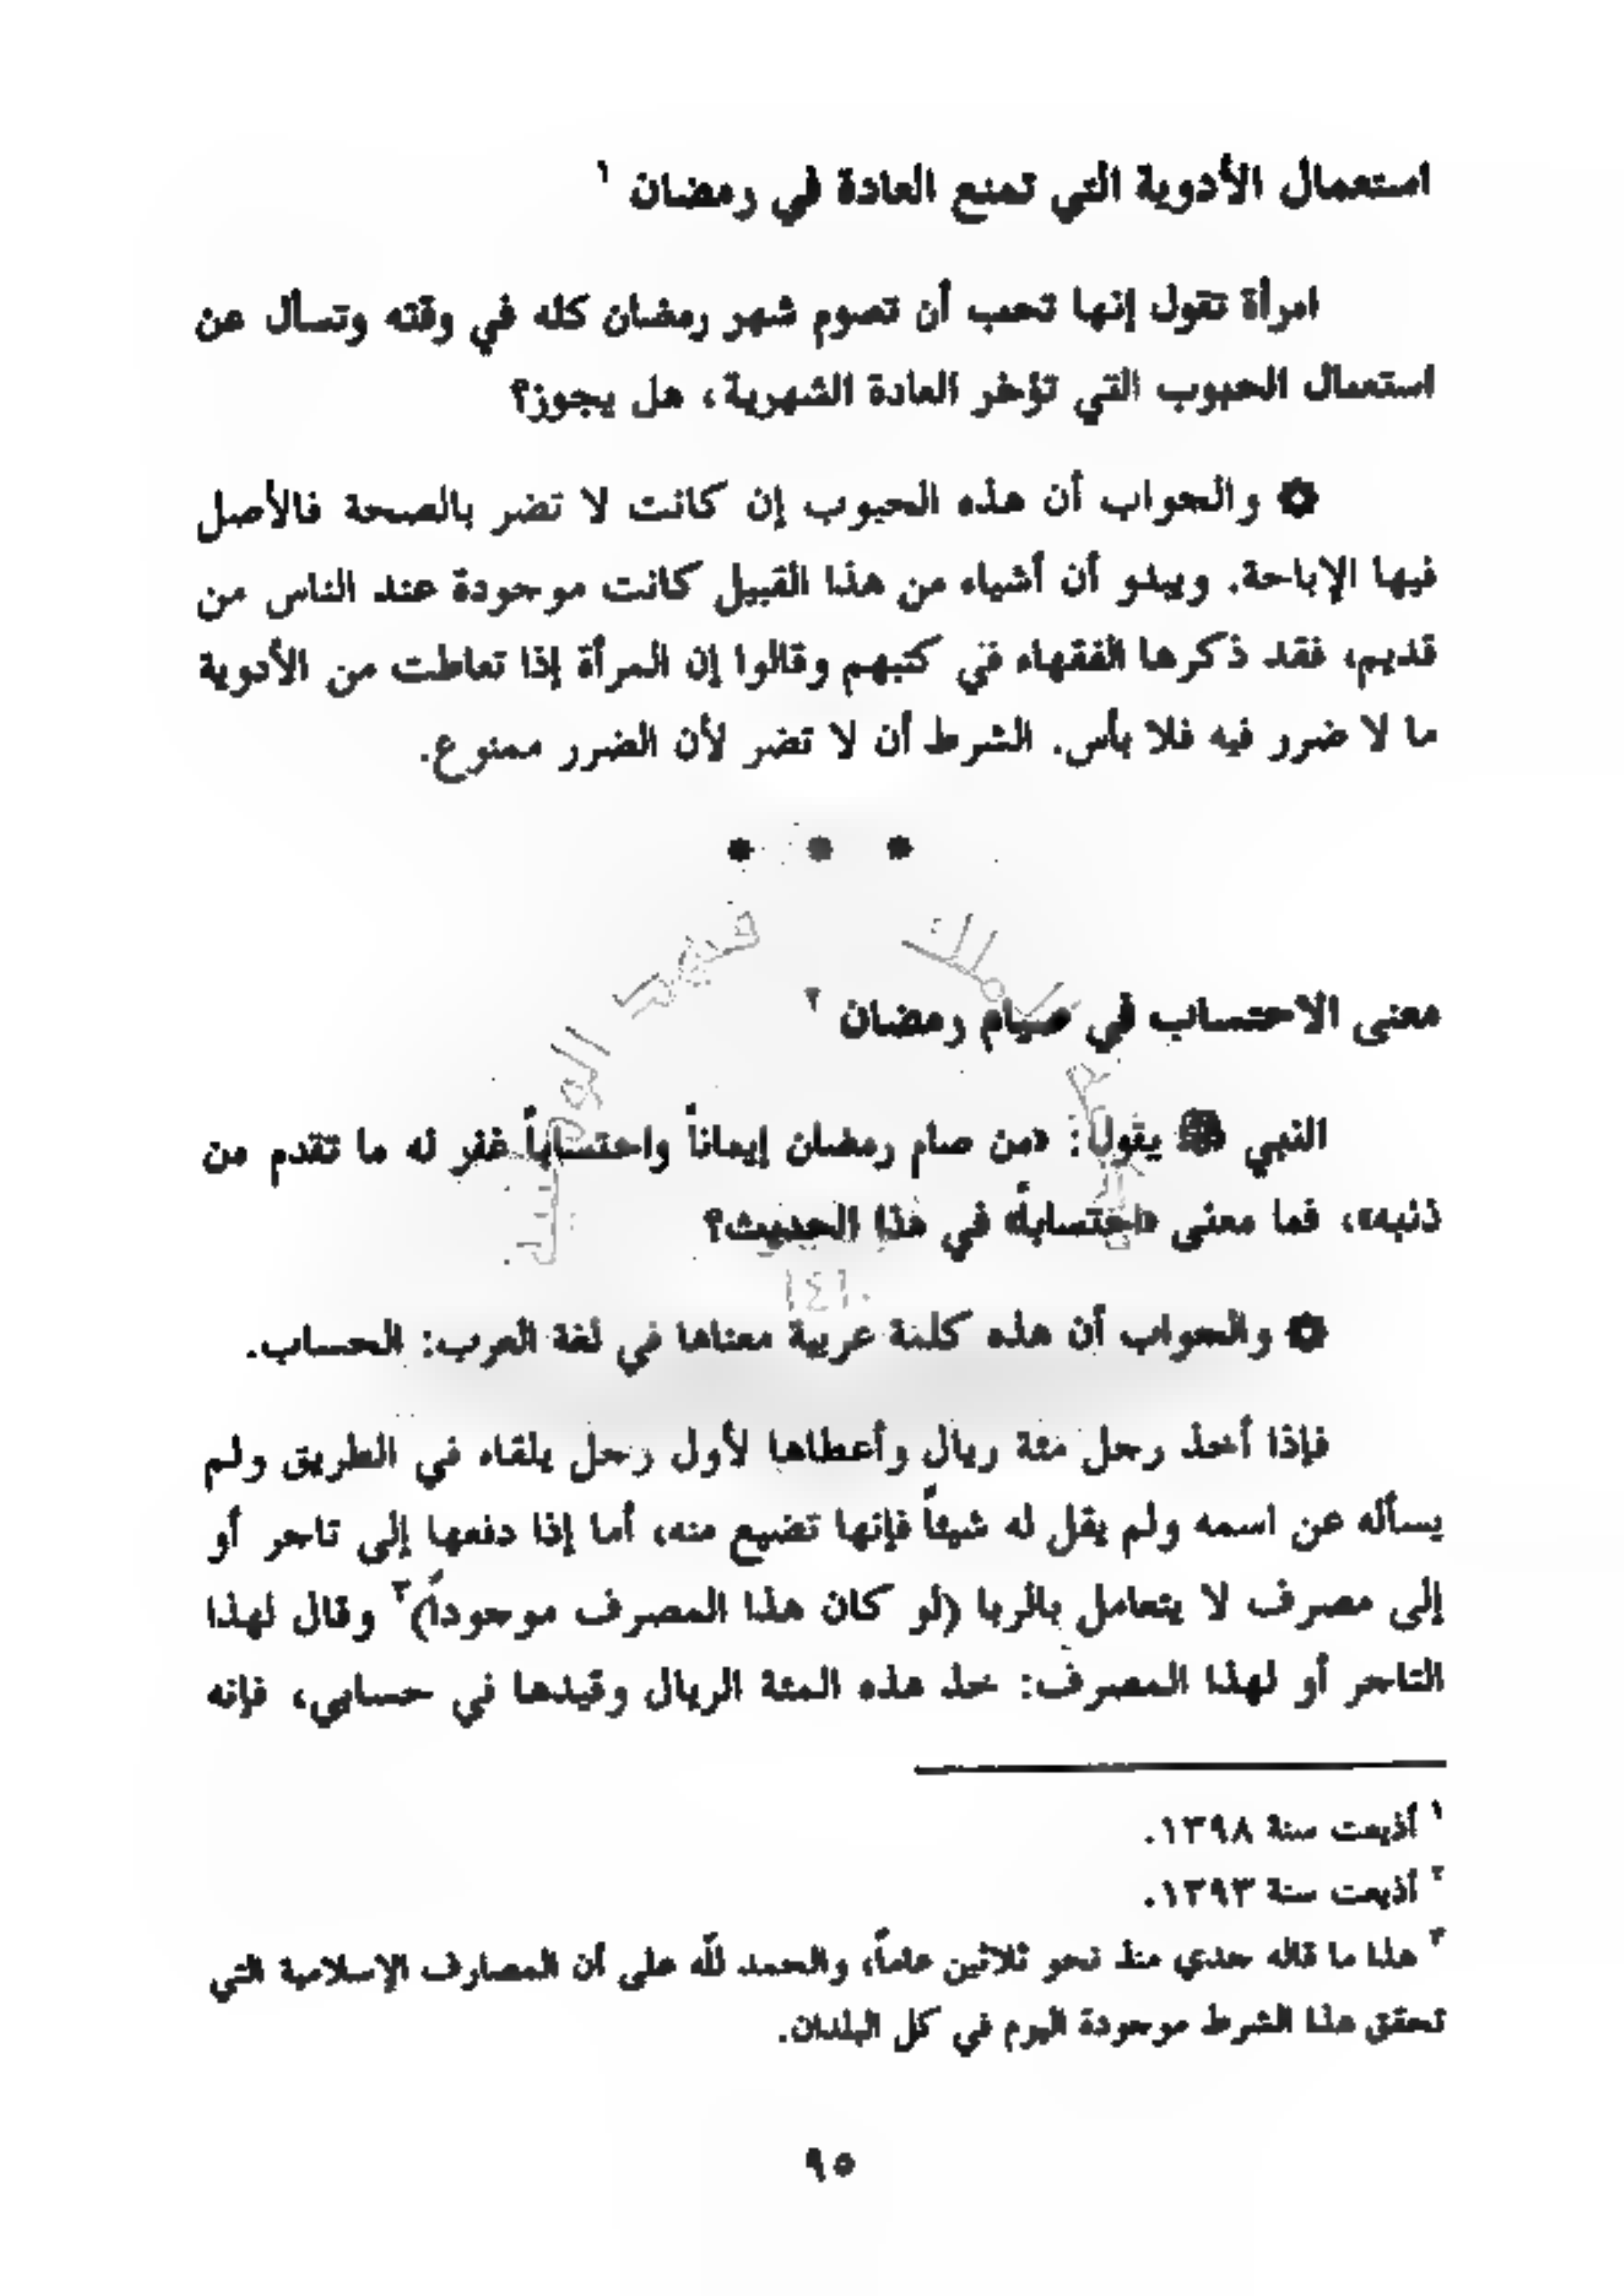 استعمال الأدوية التي تمنع العادة في رمضان ١
امرأة تقول إنها تحب أن تصوم شهر رمضان كله في وقته وتسأل عن
استعمال الحبوب التي تؤخر العادة الشهرية، هل يجوز؟
۞ والجواب أن هذه الحبوب إن كانت لا تضر بالصحة فالأصل
فيها الإباحة. ويبدو أن أشياء من هذا القبيل كانت موجودة عند الناس من
قديم، فقد ذكرها الفقهاء في كتبهم وقالوا إن المرأة إذا تعاطت من الأدوية
ما لا ضرر فيه فلا بأس. الشرط أن لا تضر لأن الضرر ممنوع.
• • •
معنى الاحتساب في صيام رمضان ٢
النبي ﷺ يقول: «من صام رمضان إيماناً واحتساباً غفر له ما تقدم من
ذنبه»، فما معنى «احتساباً» في هذا الحديث؟
١٤١٠
۞ والجواب أن هذه كلمة عربية معناها في لغة العرب: الحساب.
فإذا أخذ رجل مئة ريال وأعطاها لأول رجل يلقاه في الطريق ولم
يسأله عن اسمه ولم يقل له شيئاً فإنها تضيع منه، أما إذا دفعها إلى تاجر أو
إلى مصرف لا يتعامل بالربا (لو كان هذا المصرف موجوداً)٣ وقال لهذا
التاجر أو لهذا المصرف: خذ هذه المئة الريال وقيدها في حسابي، فإنه
١ أذيعت سنة ١٣٩٨.
٢ أذيعت سنة ١٣٩٣.
٣ هذا ما قاله جدي منذ نحو ثلاثين عاماً، والحمد لله على أن المصارف الإسلامية التي
تحقق هذا الشرط موجودة اليوم في كل البلدان.
٩٥